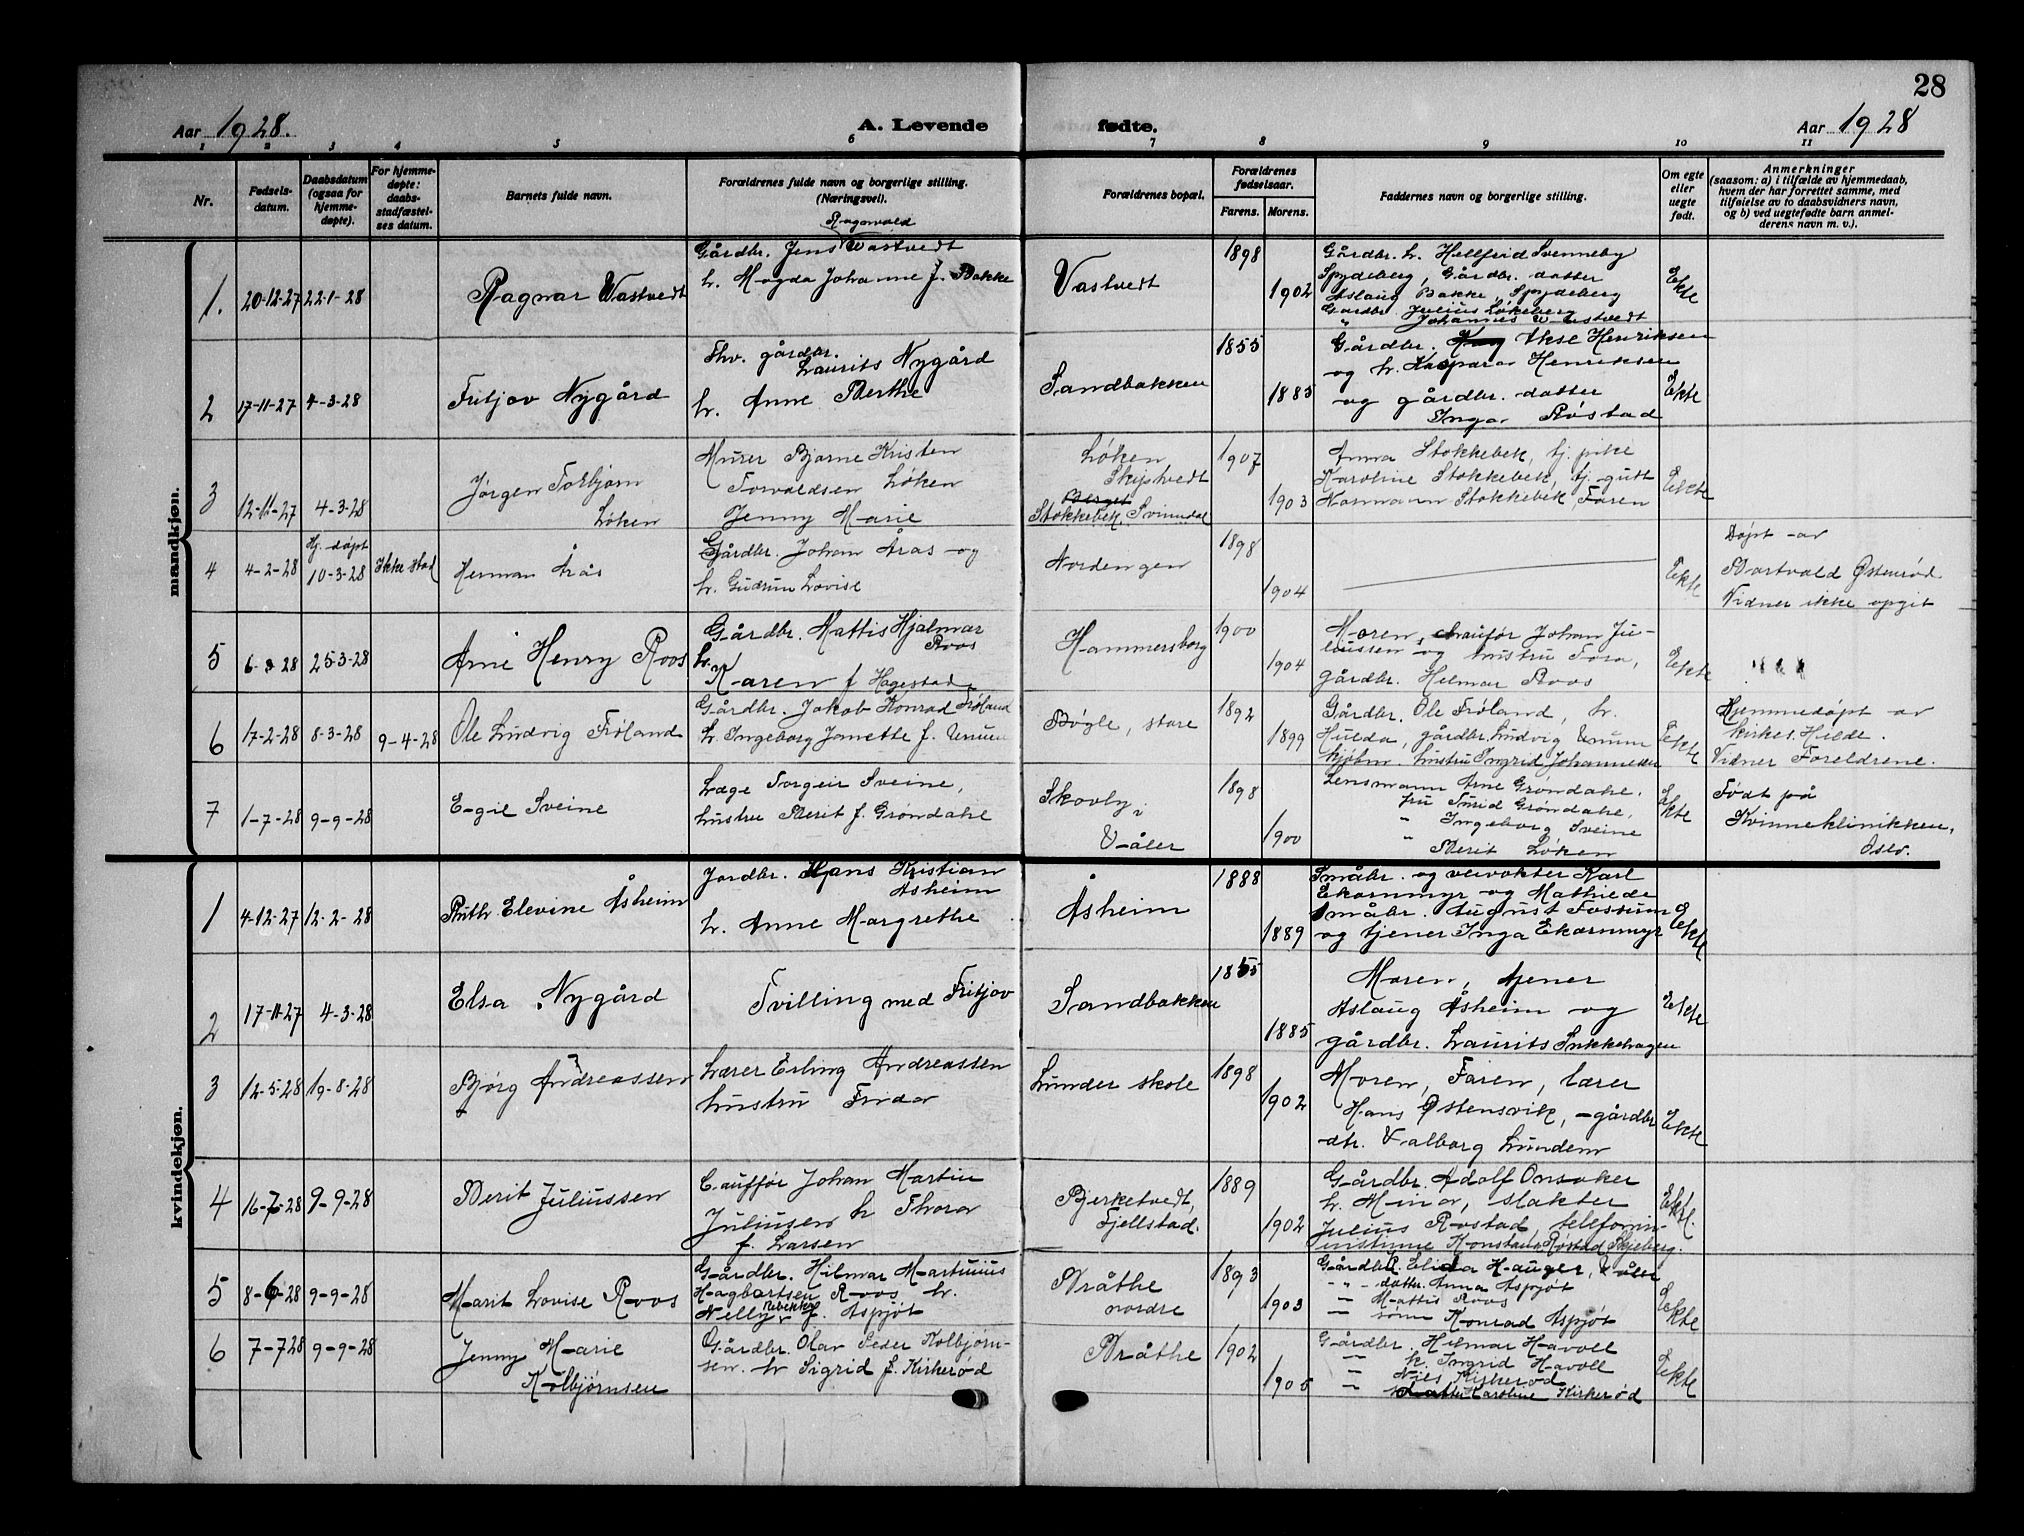 28
Aar 1928.
A. Levende
fødte.
Aar 1928
1 2 3 4 5 6 7 8 9 10 11
Nr.
Fødsels-
datum.
Daabsdatum
(ogsaa for
hjemme-
døpte).
For hjemme-
døpte:
daabs-
stadfæstel-
ses datum.
Barnets fulde navn.
Forældrenes fulde navn og borgerlige stilling.
(Næringsvei).
Forældrenes bopæl.
Forældrenes
fødselsaar.
Farens. Morens.
Faddernes navn og borgerlige stilling.
Om egte
eller
uegte
født.
Anmerkninger
(saasom: a) i tilfælde av hjemmedaab,
hvem der har forrettet samme, med
tilføielse av to daabsvidners navn,
og b) ved uegtefødte barn anmel-
derens navn m. v.).
mandkjøn.
1. 20-12-27 22-1-28
Ragnar Vastvedt
Ragnvald
Gårdbr. Jens Vastvedt
h. Magda Johanne f. Bakke
Vastvedt
1898
1902
Gårdbr. h. Hellfrid Svenneby
Spydeberg, Gårdbr. datter
Aslaug Bakke, Spydeberg
Gårdbr. Julius Løkeberg
" Johannes Vastvedt
Ekte
2 17-11-27 4-3-28
Fritjov Nygård
Fhv. gårdbr.
Laurits Nygård
h. Anne Berthe
Sandbakken
1855
1885
Gårdbr. Akse Henriksen
og h. Kaspara Henriksen
og gårdbr. datter
Inga Røstad
Ekte
3 12-11-27 4-3-28
Jørgen Torbjørn
Løken
Murer Bjarne Kristen
Torvaldsen Løken
Jenny Marie
Løken
Skiptvedt
Berget
Stokkebek, Svinndal
1907
1903
Anna Stokkebek, tj. pike
Karoline Stokkebek, tj. gutt
Hanmann Stokkebek, Faren
Ekte
4 4-2-28
Hj. døpt
10-3-28
Ikke stad
Herman Årås
Gårdbr. Johan Årås og
h. Gudrun Lovise
Nordengen
1898
1904
Ekte
Døpt av
Martvald Østenrød
Vidner ikke opgit
5 28 25-3-28
Arne Henry Roos
Gårdbr. Mattis Hjalmar
Roos
h.
Karen f Hagestad
Hammersborg
1900
1904
Moren, chaufør Johan Ju-
liussen og hustru Tora,
gårdbr. Hilmar Roos
Ekte
6 17-2-28 8-3-28 9-4-28
Ole Ludvig Frøland
Gårdbr. Jakob Konrad Frøland
h. Ingeborg Janette f. Unum
Bøgle, store
1892
1899
Gårdbr. Ole Frøland, h.
Hulda, gårdbr. Ludvig Unum
kjøbm. hustru Ingrid Johannessen
Ekte
Hjemmedøpt av
kirkes. Hilde.
Vidner Foreldrene.
7 1-7-28 9-9-28
Egil Sveine
Læge Torgeir Sveine,
hustru Berit f. Grøndahl
Skovly i
Våler
1898
1900
Lensmann Arne Grøndahl,
fru Turid Grøndahl,
" Ingeborg Sveine
" Berit Løken
Ekte
Født på
Kvinneklinikken,
Oslo.
kvindekjøn.
1 4-12-27 12-2-28
Ruth Elevine Åsheim
Jordbr. Hans Kristian
Åsheim
h. Anne Margrethe
Åsheim
1888
1889
Småbr. og veivokter Karl
Ekornmyr og Mathilde
Småbr. August Fossum
og tjener Inga Ekornmyr
Ekte
2 17-11-27 4-3-28
Elsa Nygård
Tvilling med Fritjov
Sandbakken
1855
1885
Moren, tjener
Aslaug Åsheim og
gårdbr. Laurits Sukkehagen
Ekte
3 12-5-28 19-8-28
Bjørg Andreassen
Lærer Erling Andreassen
hustru Frida
Lunder skole
1898
1902
Moren, Faren, lærer
Hans Østensvik, gårdbr
dtr. Valborg Lundem
Ekte
4 16-7-28 9-9-28
Berit Juliussen
Cauffør Johan Martin
Juliusen h Thora
f. Larsen
Bjerketvedt,
Fjellstad.
1889
1902
Gårdbr. Adolf Onsaker
h. Mina, slakter
Julius Røstad, telefonin-
Konstanse Røstad Skjeberg.
Ekte.
5 8-6-28 9-9-28
Marit Lovise Roos
Gårdbr. Hilmar Martinius
Hagbartsen Roos h.
Nelly Rebekka f. Aspjøt
Bråthe
nordre
1893
1903
Gårdbr. Elida Hauger, Våler
" " datter Anna Aspjøt
" Mattis Roos
" sønn Konrad Aspjøt
Ekte
6 7-7-28 9-9-28
Jenny Marie
Kolbjørnsen
Gårdbr. Olav Peder Kolbjørn-
sen. h Sigrid f. Kirkerød
Bråthe
1902
1905
Gårdbr. Hilmar Havoll
" h. Ingrid Havoll
" Nils Kirkerød
" datter Karoline Kirkerød
Ekte